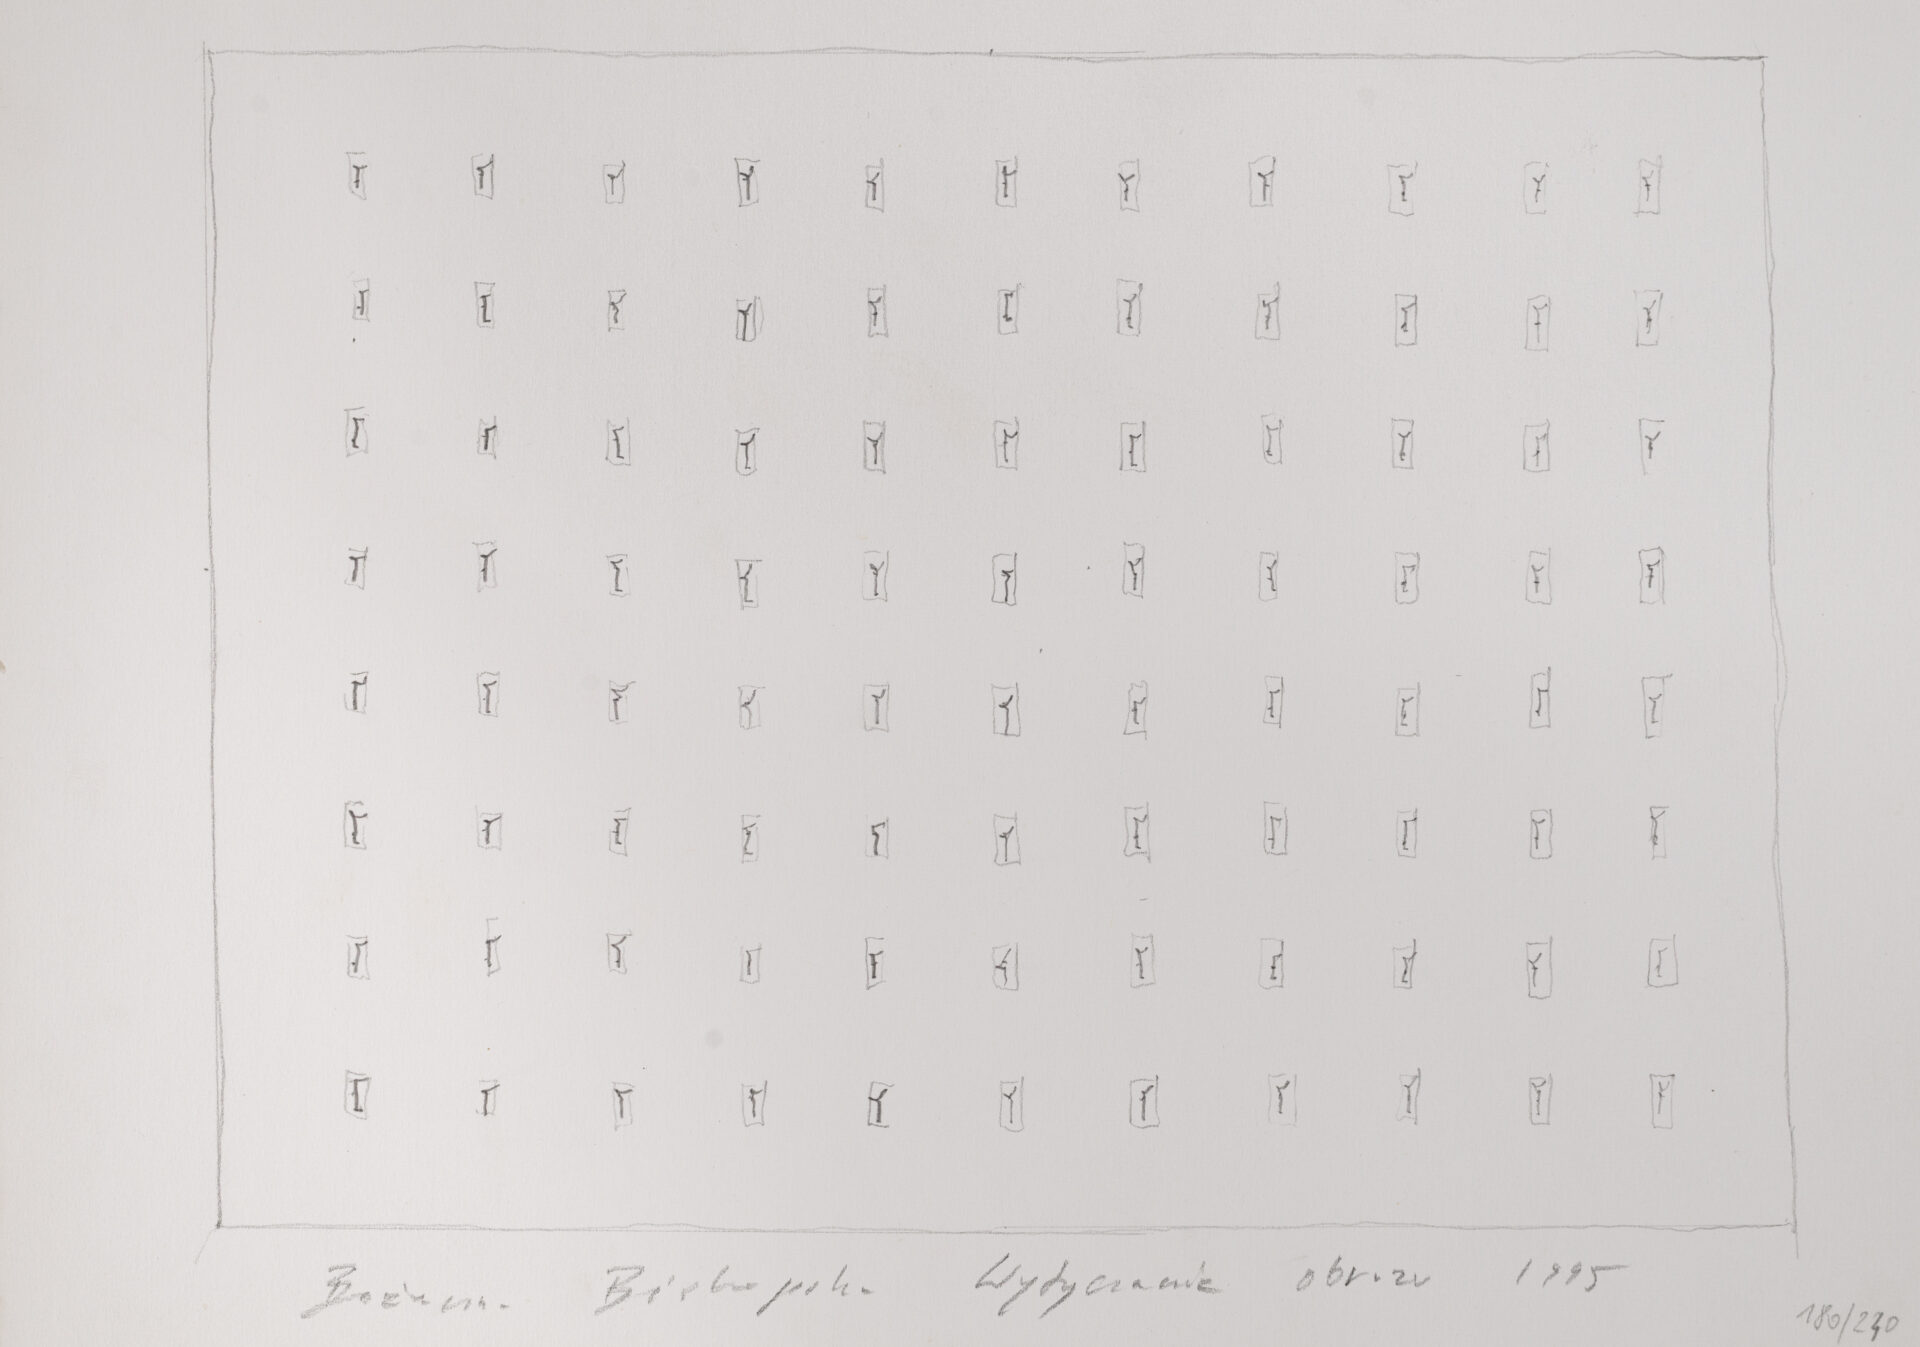 Bożenna Biskupska Wytyczanie obrazu 1995
180/240